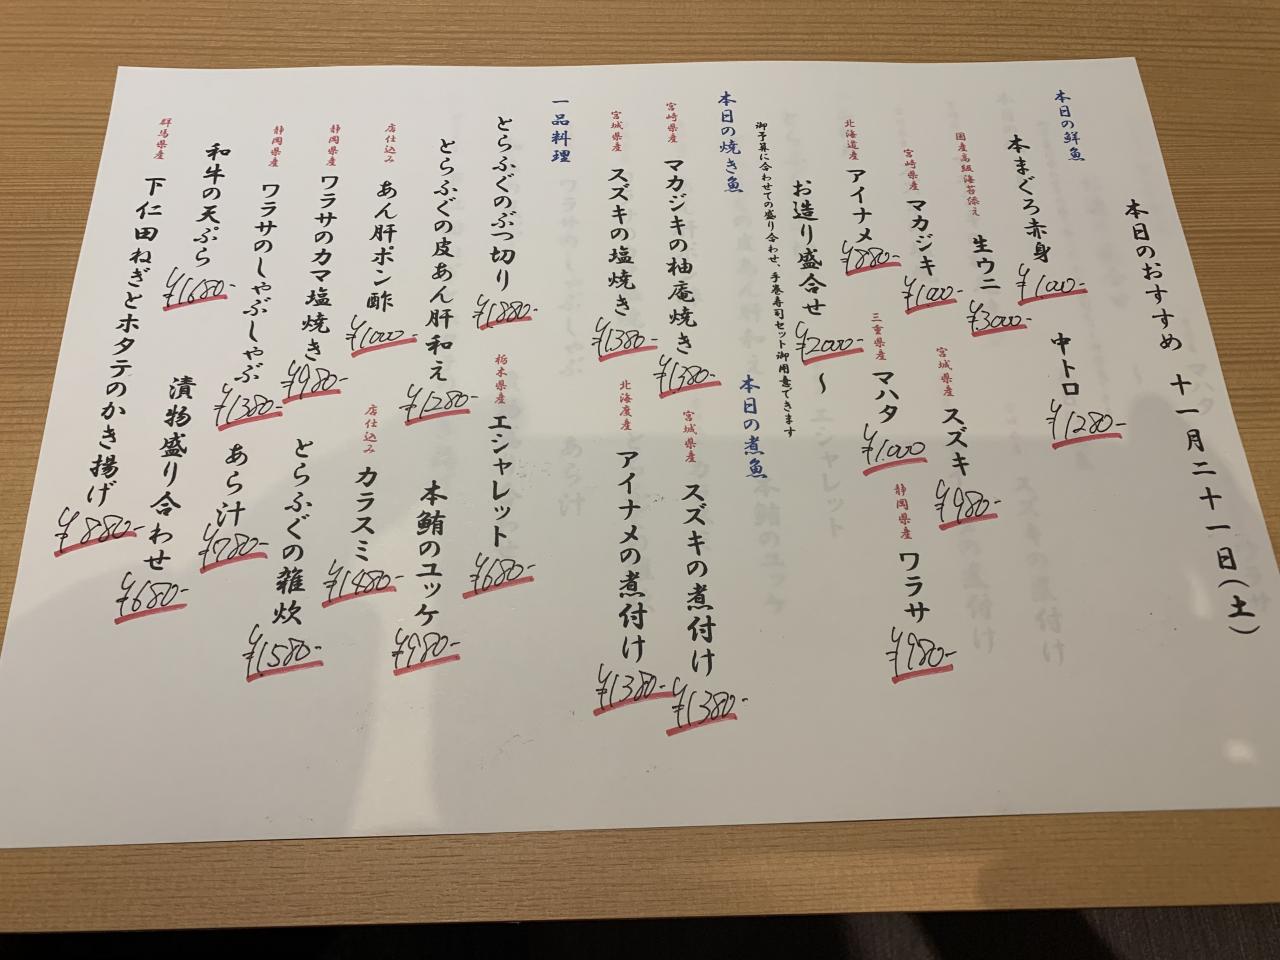 本日のおすすめ 十一月二十一日(土)
本日の鮮魚
本まぐろ赤身 ¥1,000- 中トロ ¥1,280-
国産高級海苔添え 生ウニ ¥3,000- 宮城県産 スズキ ¥980-
宮崎県産 マカジキ ¥1,000- 静岡県産 ワラサ ¥980-
北海道産 アイナメ ¥880- 三重県産 マハタ ¥1,000
お造り盛合せ ¥2000- 〜
御予算に合わせての盛り合わせ、手巻寿司セット御用意できます
本日の焼き魚
マカジキの柚庵焼き ¥1,380-
宮崎県産
宮城県産 スズキの塩焼き ¥1380-
本日の煮魚
宮城県産 スズキの煮付け ¥1380-
北海度産 アイナメの煮付け ¥1380-
一品料理
とらふぐのぶつ切り ¥1,880- 栃木県産 エシャレット ¥680-
とらふぐの皮あん肝和え ¥1,280- 本鮪のユッケ ¥980-
店仕込み あん肝ポン酢 ¥1000- 店仕込み カラスミ ¥1480-
静岡県産 ワラサのカマ塩焼き ¥980- とらふぐの雑炊 ¥1,580-
静岡県産 ワラサのしゃぶしゃぶ ¥1380- あら汁 ¥780-
和牛の天ぷら ¥1,680- 漬物盛り合わせ ¥680-
群馬県産 下仁田ねぎとホタテのかき揚げ ¥880-